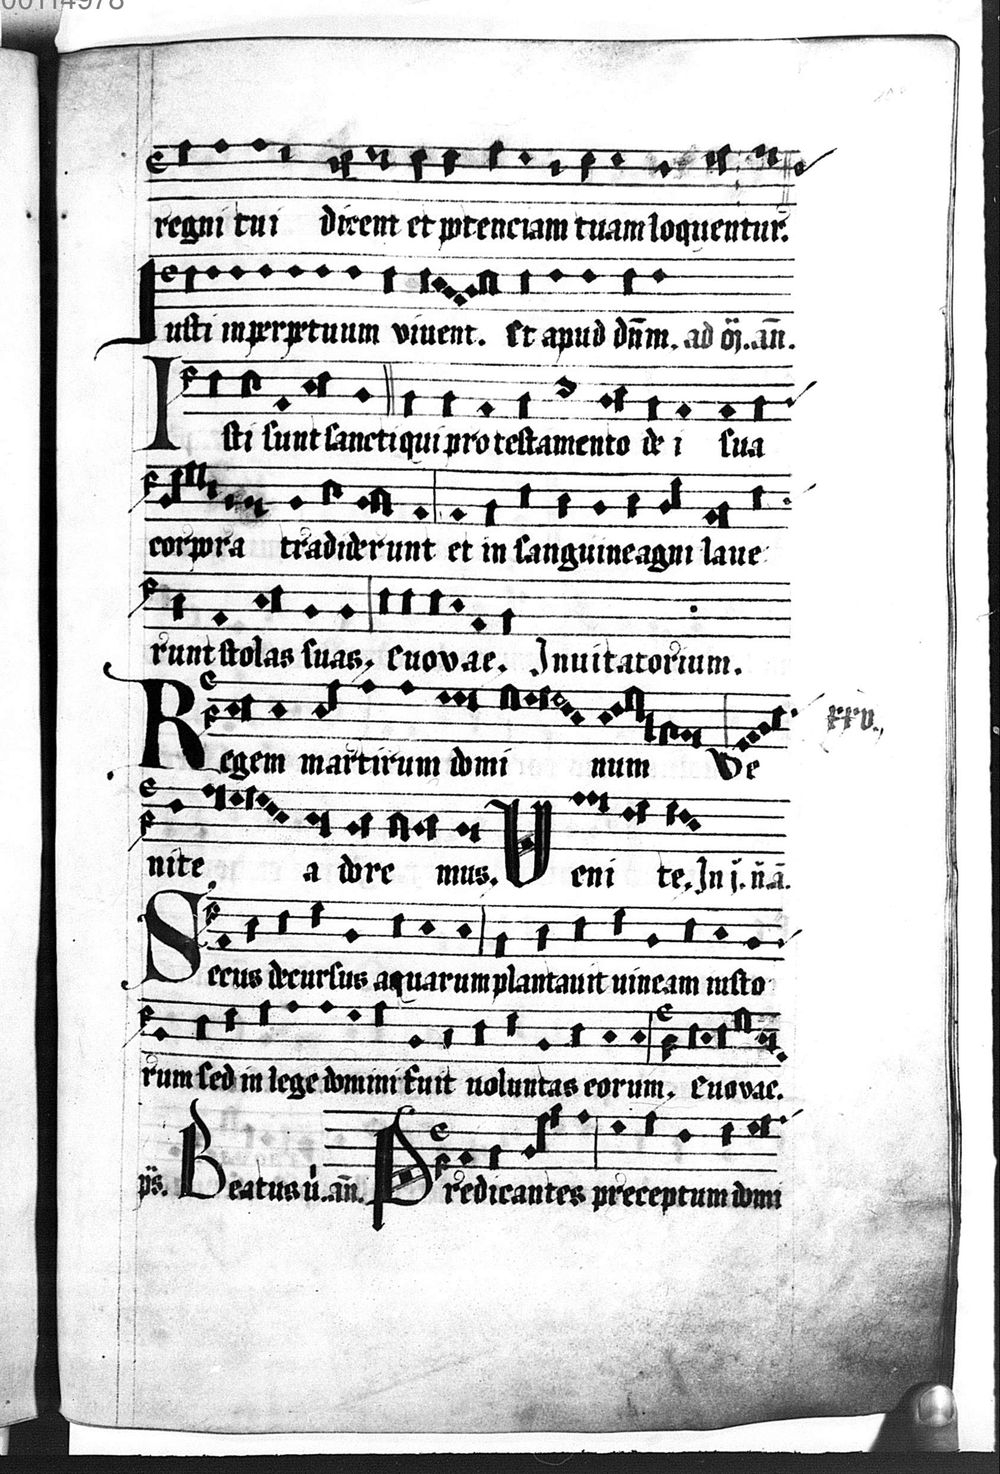 00114978
regni tui dicent et potenciam tuam loquentur.
Iusti in perpetuum viuent. Et apud dn̄m. ad
Isti sunt sancti qui pro testamento dei sua
corpora tradiderunt et in sanguine agni laue
runt stolas suas. Euovae. Inuitatorium.
Regem martirum domi num Ve
xxv.
nite a dore mus. Veni te. In j. n̄.a.
Secus decursus aquarum plantauit uineam iusto
rum sed in lege domini fuit uoluntas eorum. Euovae.
ps. Beatus ú. an̄. Predicantes preceptum domi